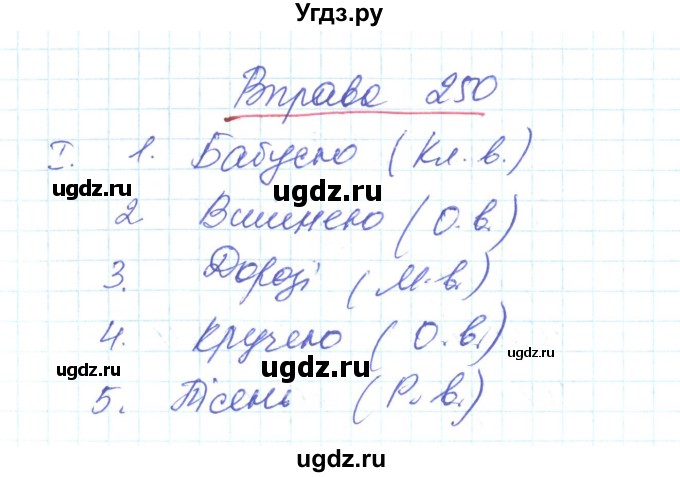 Угдз.ру
Вправа 250
I. 1. Бабусю (Кл. в.)
ugdz.ru
ugdz.ru
2 Вишнею (О.в.)
ugdz.ru
3. Дорозі (М.в.)
4. Кручею (О.в.)
ugdz.ru
ugdz.ru
5. Пісень (Р. в.)
ugdz.ru